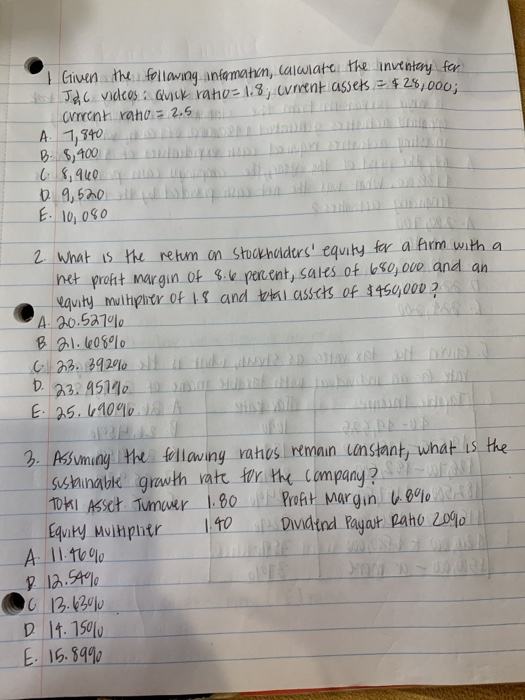 1 Given the following information, calculate the inventory for
J&C videos: Quick ratio = 1.8; current assets = $28,000;
current ratio = 2.5
A. 7,840
B. 8,400
C. 8,960
D. 9,520
E. 10,080
2. What is the return on stockholders' equity for a firm with a
net profit margin of 8.6 percent, sales of 680,000 and an
equity multiplier of 1.8 and total assets of $450,000?
A. 20.527%
B 21.608%
C. 23.392%
D. 23.957%
E. 25.690%
3. Assuming the following ratios remain constant, what is the
sustainable growth rate for the company?
Total Asset Turnover 1.80 Profit Margin 6.80%
Equity Multiplier 1.40 Dividend Payout Ratio 20%
A. 11.46%
B 12.54%
C 13.63%
D. 14.75%
E. 15.89%